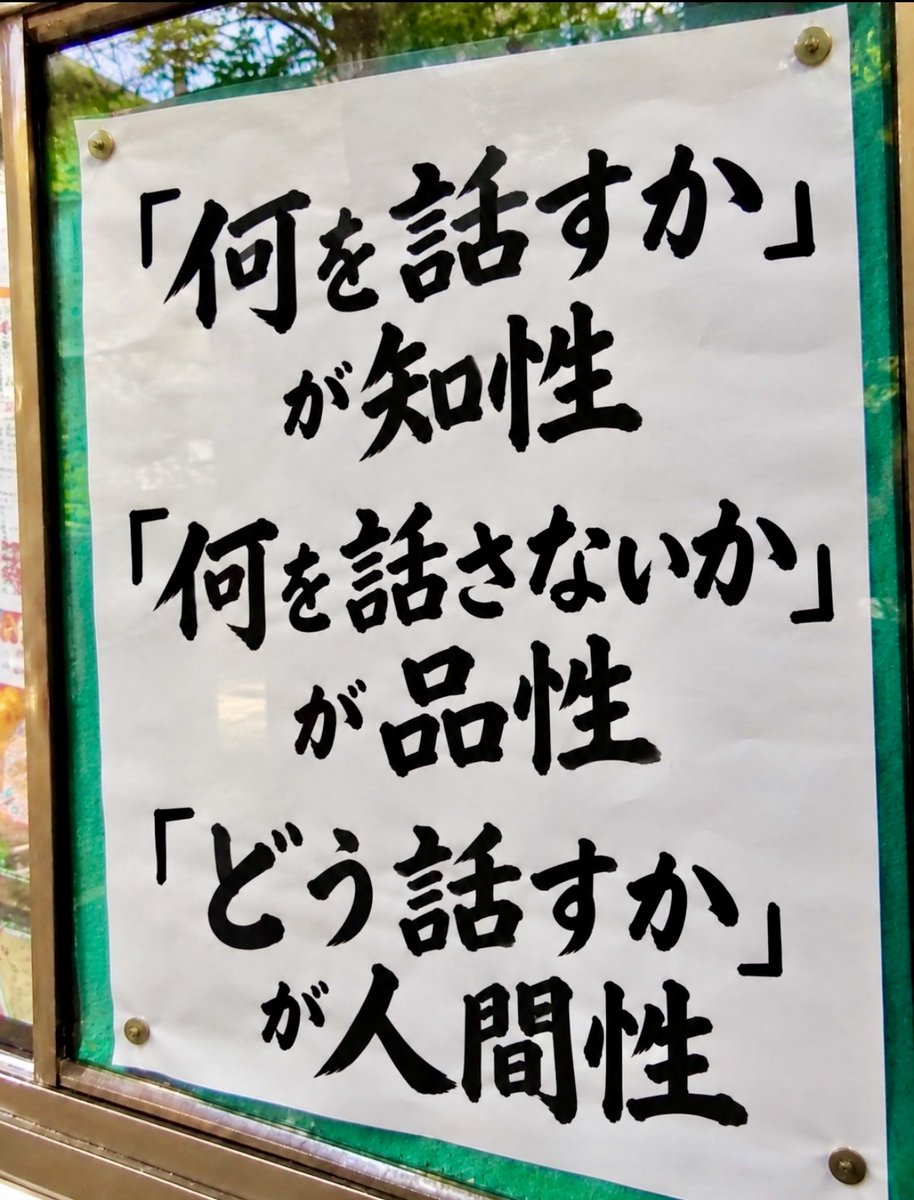 「何を話すか」
が知性
「何を話さないか」
が品性
「どう話すか」
が人間性